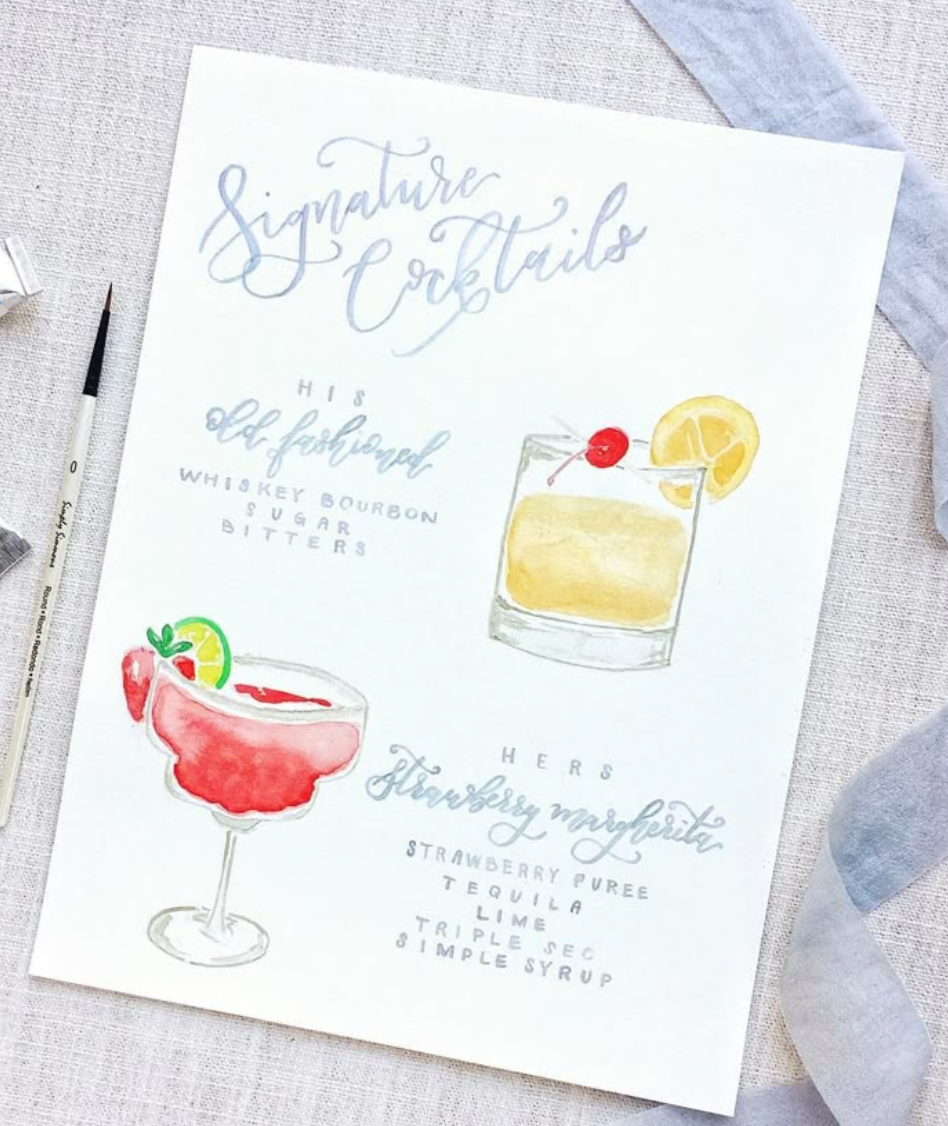 Signature
Cocktails
HIS
old fashioned
WHISKEY BOURBON
SUGAR
BITTERS
HERS
strawberry margherita
STRAWBERRY PUREE
TEQUILA
LIME
TRIPLE SEC
SIMPLE SYRUP
0 Simply Simmons Round • Rond • Redondo •